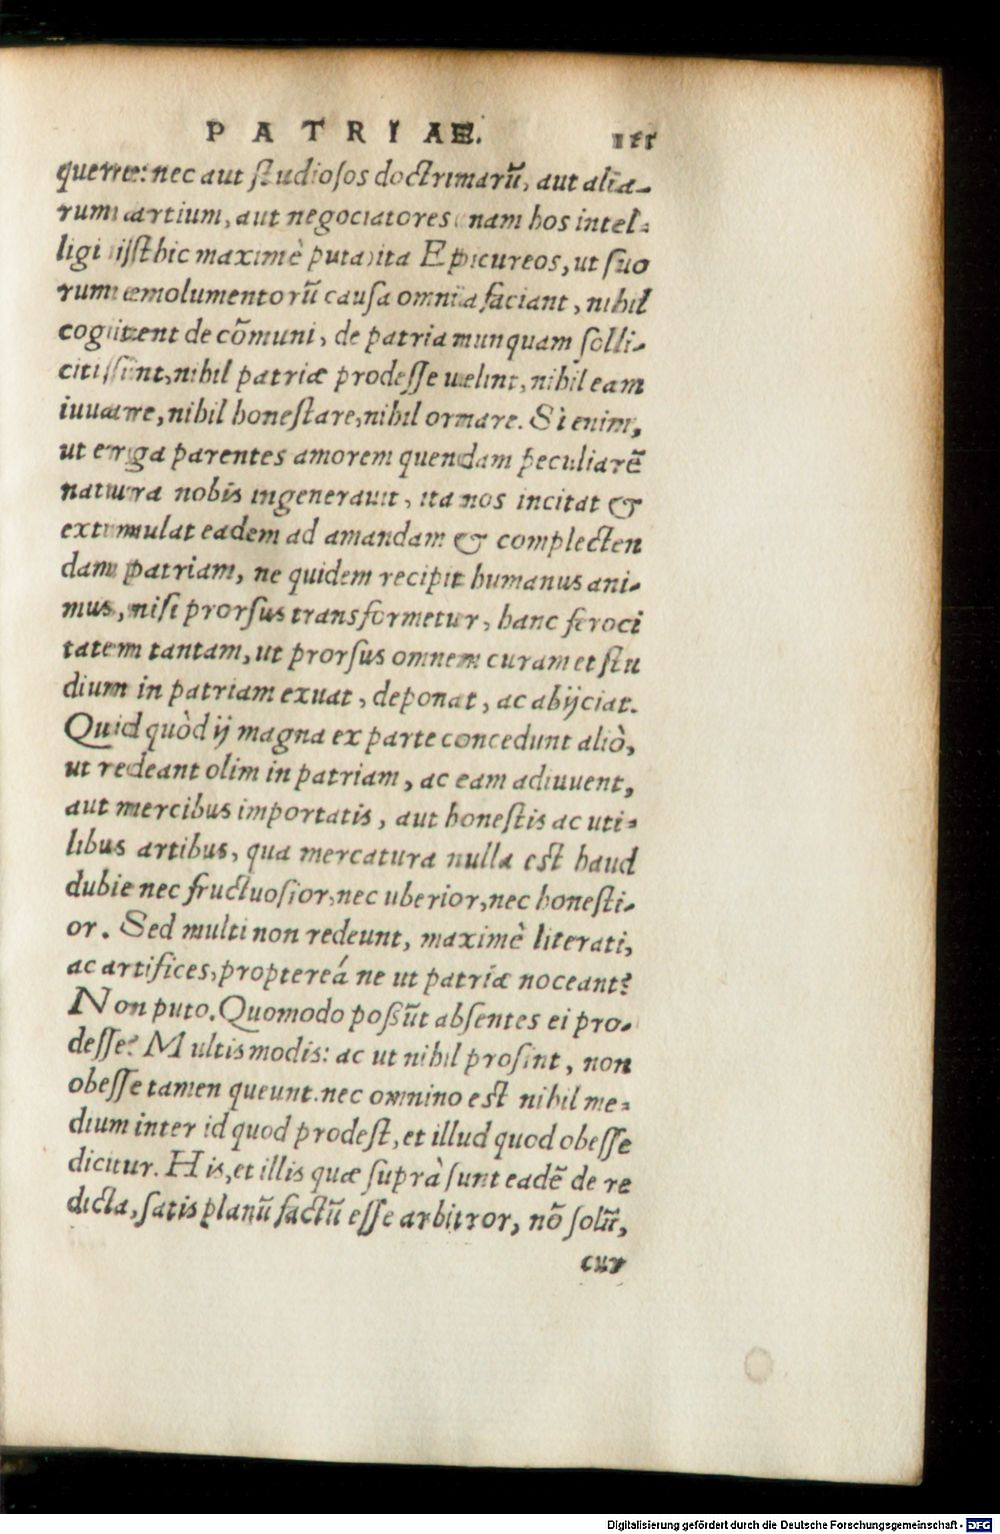 PATRIAE. 111
querre: nec aut studiosos doctrinarũ, aut alia-
rum artium, aut negociatores: nam hos intel-
ligi isthic maximè puta) ita Epicureos, ut suo
rum emolumentorũ causa omnia faciant, nihil
cogitent de cõmuni, de patria nunquam solli-
citi sint, nihil patriæ prodesse uelint, nihil eam
iuuare, nihil honestare, nihil ornare. Si enim,
ut erga parentes amorem quendam peculiarẽ
natura nobis ingenerauit, ita nos incitat &
extimulat eadem ad amandam & complecten
dam patriam, ne quidem recipit humanus ani-
mus, nisi prorsus transformetur, hanc feroci
tatem tantam, ut prorsus omnem curam et stu
dium in patriam exuat, deponat, ac abijciat.
Quid quòd ij magna ex parte concedunt aliò,
ut redeant olim in patriam, ac eam adiuuent,
aut mercibus importatis, aut honestis ac uti-
libus artibus, qua mercatura nulla est haud
dubie nec fructuosior, nec uberior, nec honesti-
or. Sed multi non redeunt, maximè literati,
ac artifices, propterea ́ne ut patriæ noceant?
Non puto. Quomodo possũt absentes ei pro-
desse? Multis modis: ac ut nihil prosint, non
obesse tamen queunt. nec omnino est nihil me-
dium inter id quod prodest, et illud quod obesse
dicitur. His, et illis quæ suprà sunt eadẽ de re
dicta, satis planũ factũ esse arbitror, nõ solũ,
cur
Digitalisierung gefördert durch die Deutsche Forschungsgemeinschaft - DFG